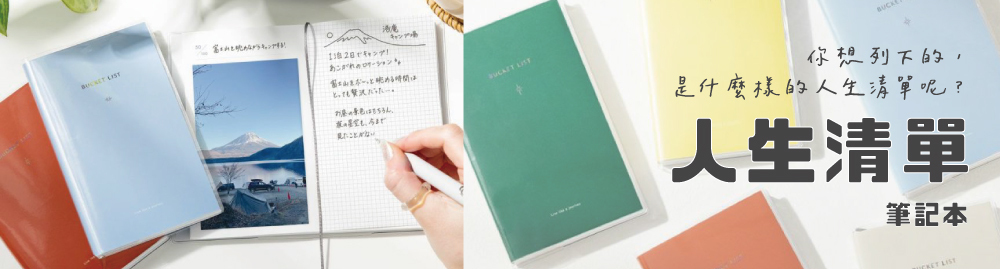 BUCKET LIST
富士山を眺めながらキャンプする!
浩庵
キャンプ場
1泊2日でキャンプ!
あこがれのロケーション
富士山をぼーっと眺める時間は
とっても贅沢だった…。
お昼の景色はもちろん、
夜の星空も、今まで
見たことがない
BUCKET LIST
BUCKET LIST
你想列下的，
是什麼樣的人生清單呢？
人生清單
筆記本
BUCKET LIST
BUCKET LIST